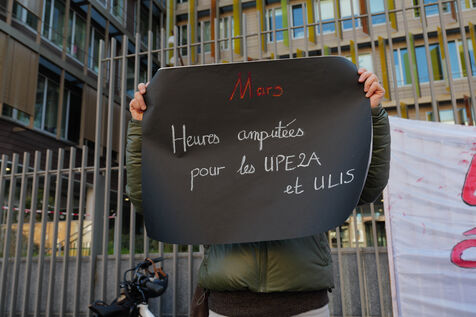 Mars
Heures amputées
pour les UPE2A
et ULIS